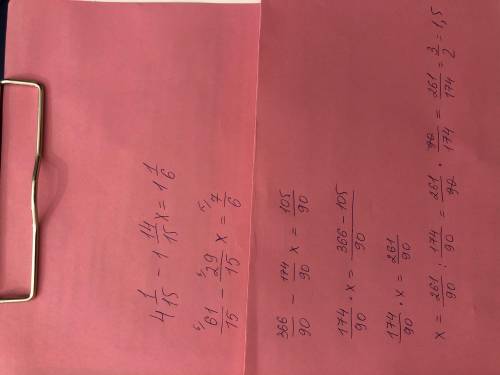 4 1/15 - 1 14/15 x = 1 1/6
61/15 - 29/15 x = 7/6
366/90 - 174/90 x = 105/90
174/90 · x = 366-105/90
174/90 · x = 261/90
x = 261/90 : 174/90 = 261/90 · 90/174 = 261/174 = 3/2 = 1,5